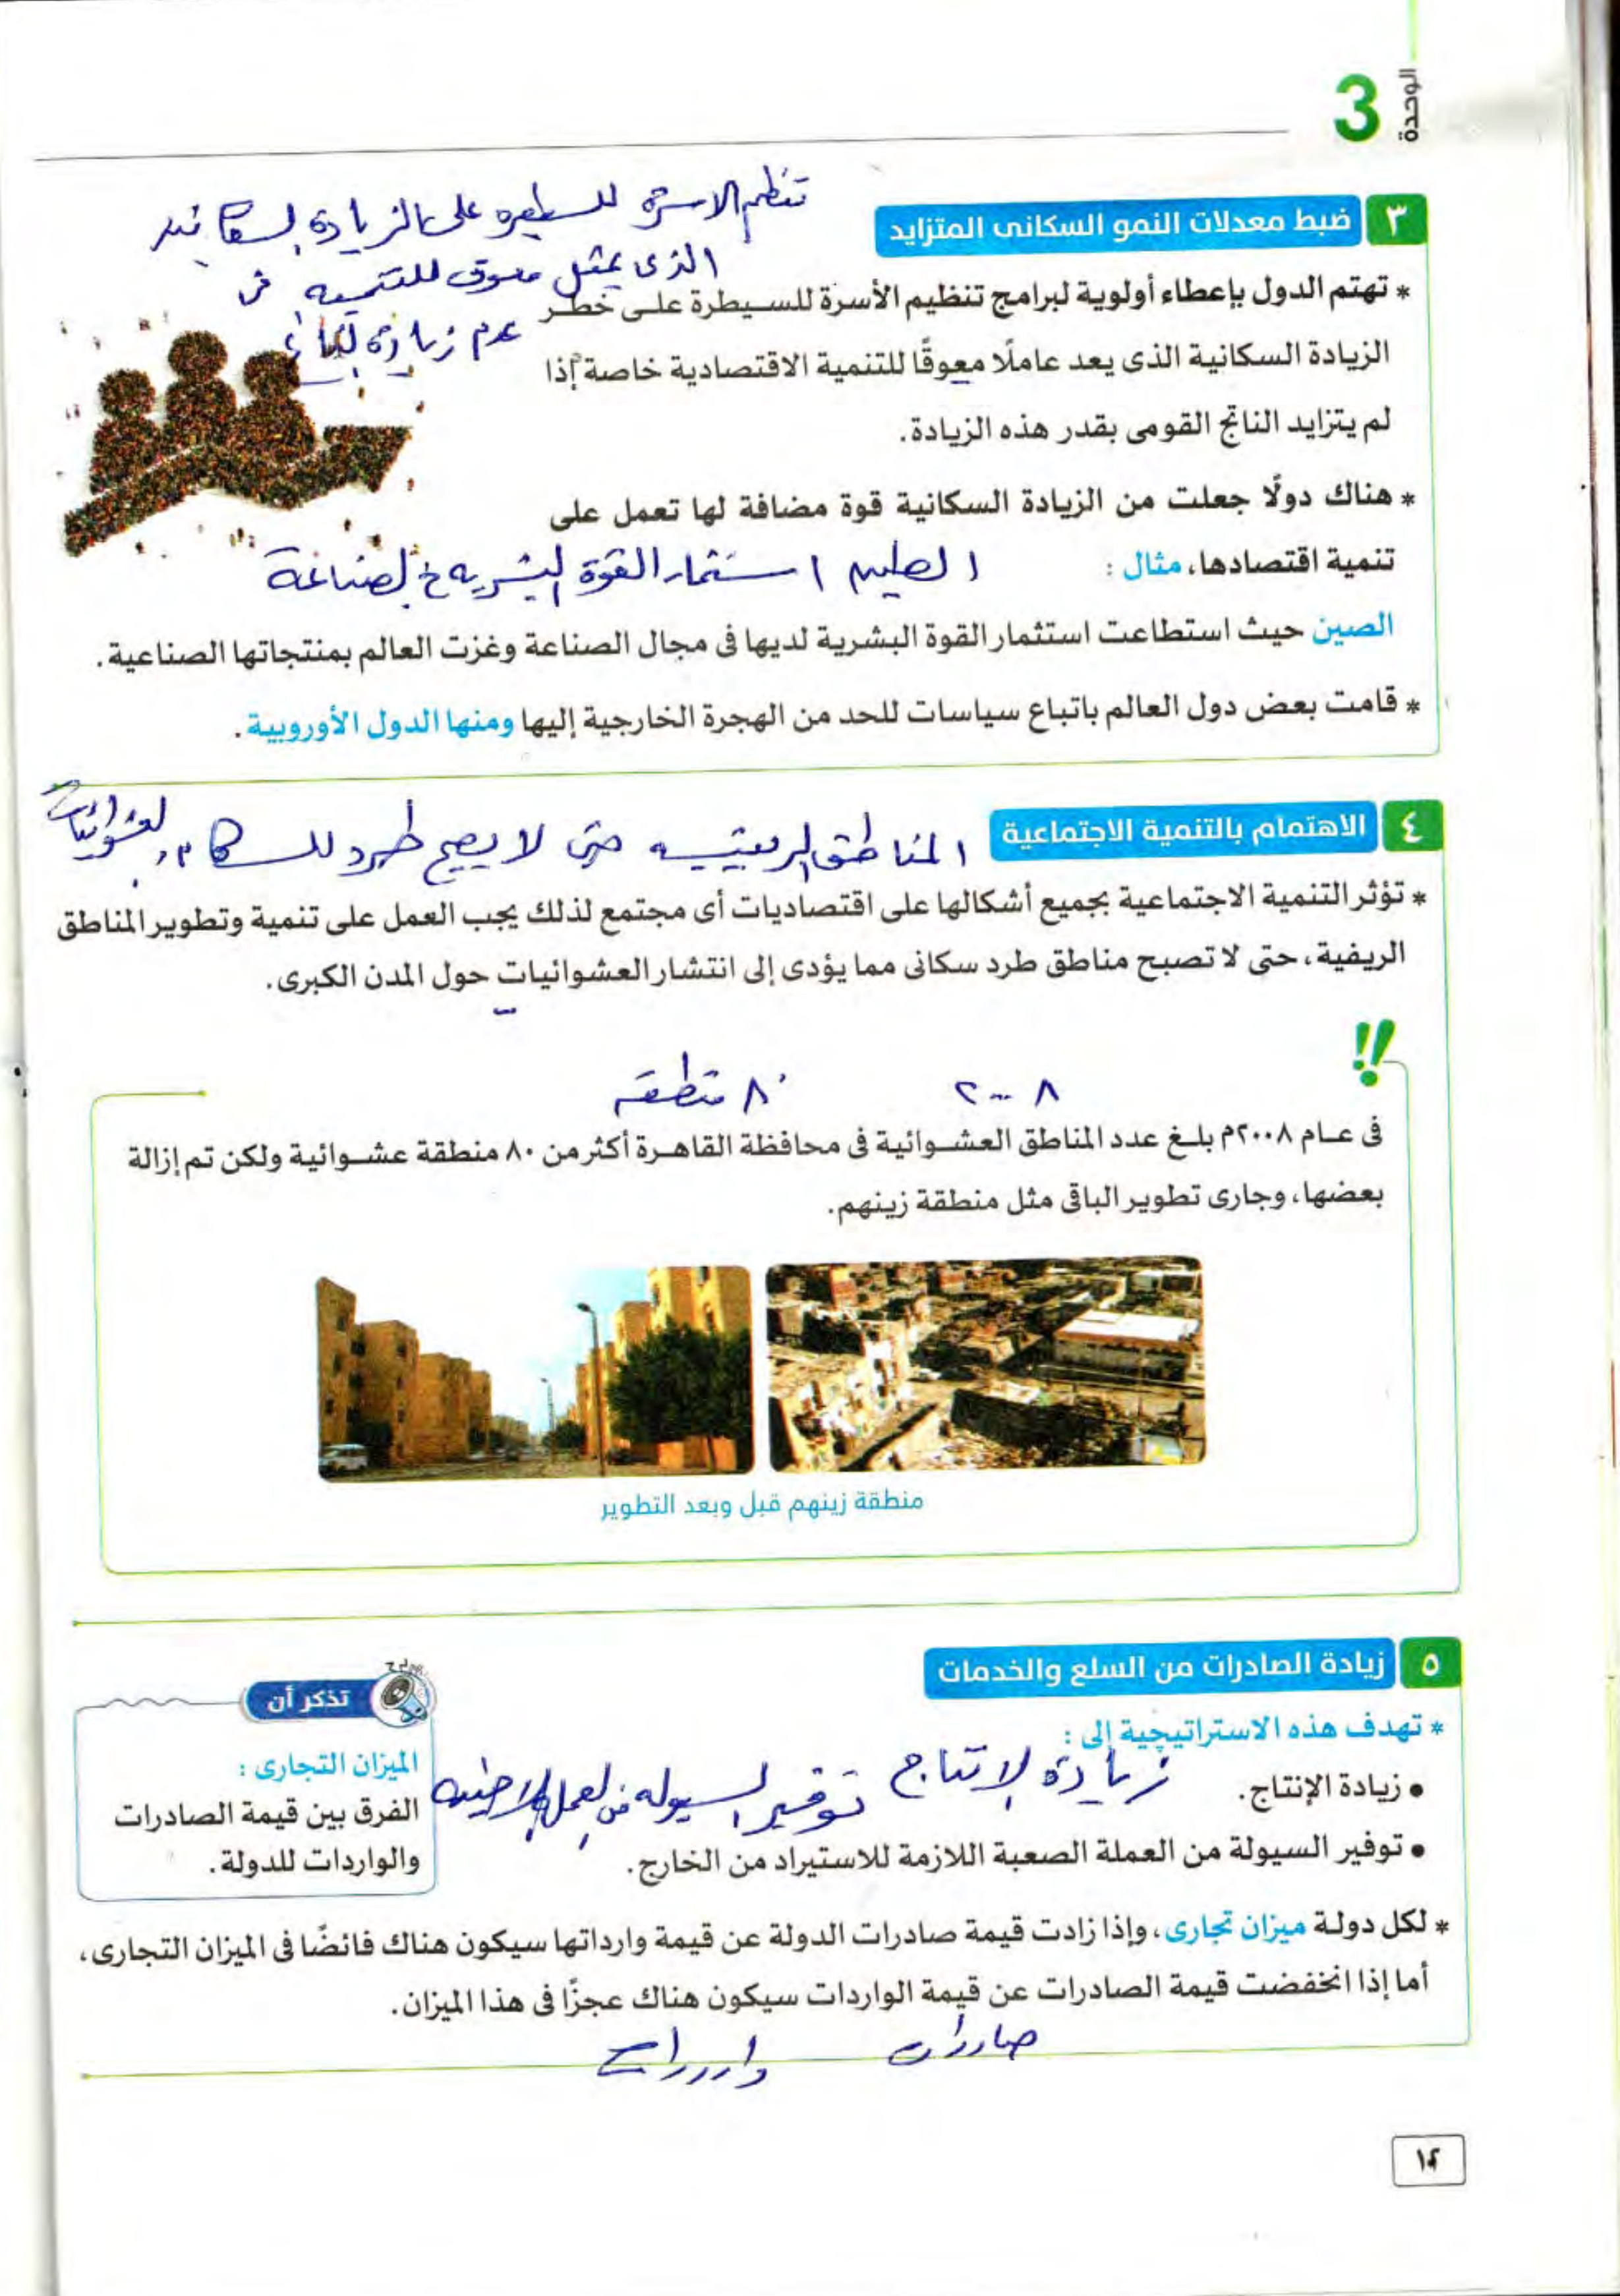 الوحدة 3
تنظيم الاسرة للسيطره على الزيادة السكانيه
٣ ضبط معدلات النمو السكانى المتزايد
الذى يمثل معوق للتنميه فى
* تهتم الدول بإعطاء أولوية لبرامج تنظيم الأسرة للسيطرة على خطر
عدم زيادة
الزيادة السكانية الذى يعد عاملًا معوقًا للتنمية الاقتصادية خاصة إذا
لم يتزايد الناتج القومى بقدر هذه الزيادة.
* هناك دولًا جعلت من الزيادة السكانية قوة مضافة لها تعمل على
تنمية اقتصادها، مثال :
استثمار القوة البشريه الصناعة
الصين حيث استطاعت استثمار القوة البشرية لديها فى مجال الصناعة وغزت العالم بمنتجاتها الصناعية.
* قامت بعض دول العالم باتباع سياسات للحد من الهجرة الخارجية إليها ومنها الدول الأوروبية.
٤ الاهتمام بالتنمية الاجتماعية
المناطق الريفيه حتى لا يصبح طرد للسكان العشوائيات
* تؤثر التنمية الاجتماعية بجميع أشكالها على اقتصاديات أى مجتمع لذلك يجب العمل على تنمية وتطوير المناطق
الريفية، حتى لا تصبح مناطق طرد سكانى مما يؤدى إلى انتشار العشوائيات حول المدن الكبرى.
!!
٢٠٠٨ ٨٠ منطقه
فى عام ٢٠٠٨م بلغ عدد المناطق العشوائية فى محافظة القاهرة أكثر من ٨٠ منطقة عشوائية ولكن تم إزالة
بعضها، وجارى تطوير الباقى مثل منطقة زينهم.
منطقة زينهم قبل وبعد التطوير
٥ زيادة الصادرات من السلع والخدمات
* تهدف هذه الاستراتيچية إلى :
زيادة الانتاج توفير السيوله من العمله الاجنبيه
• زيادة الإنتاج.
• توفير السيولة من العملة الصعبة اللازمة للاستيراد من الخارج.
تذكر أن
الميزان التجارى :
الفرق بين قيمة الصادرات
والواردات للدولة.
* لكل دولة ميزان تجارى، وإذا زادت قيمة صادرات الدولة عن قيمة وارداتها سيكون هناك فائضًا فى الميزان التجارى،
أما إذا انخفضت قيمة الصادرات عن قيمة الواردات سيكون هناك عجزًا فى هذا الميزان.
صادرات واردات
١٢